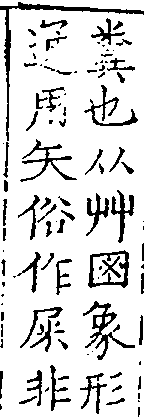 糞也从艸𡇒象形
通用矢俗作屎非